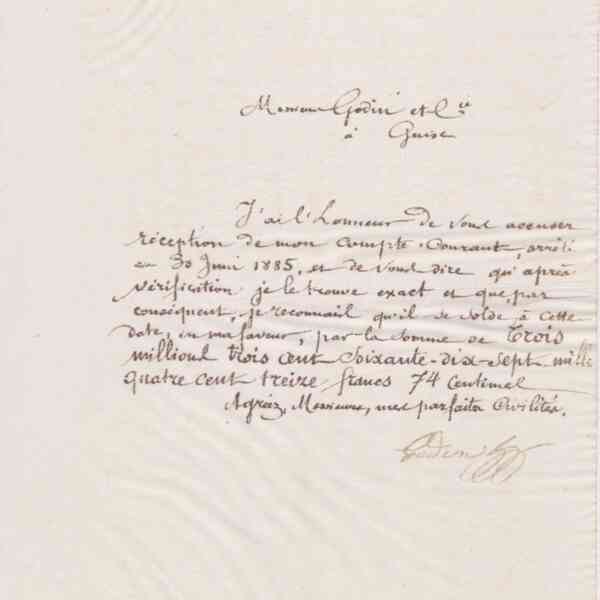 Messieurs Godin et Cie
à Guise
J'ai l'honneur de vous accuser
réception de mon Compte-Courant, arrêté
au 30 Juin 1885, et de vous dire qu'après
Vérification je le trouve exact et que, par
conséquent, je reconnais qu'il se solde à cette
date, en ma faveur, par la somme de Trois
millions trois cent soixante-dix-sept mille
quatre cent treize francs 74 Centimes
Agréez, Messieurs, mes parfaites Civilités.
Godin